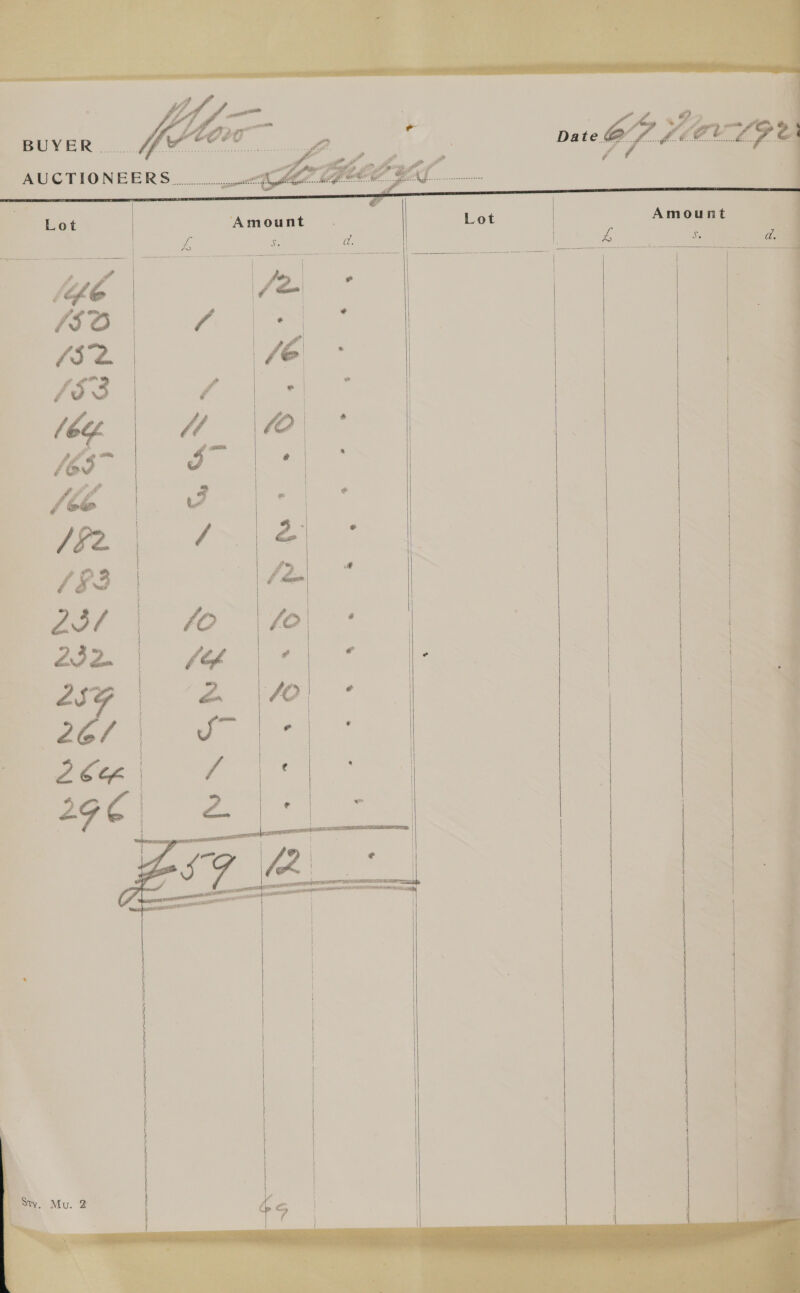 BUYER Date 6/7 Nov 192
AUCTIONEERS Sothebys
Lot Amount Lot Amount
£ s. d. £ s. d.
146 12 •
150 1 • •
152 16 •
153 1 • •
164 11 10 •
165 5 • •
166 3 • •
182 1 2 •
183 12 •
231 10 10 •
232 14 • •
259 2 10 •
261 5 • •
264 1 • •
296 2 • •
£59 12 •
Sty. Mu. 2 69